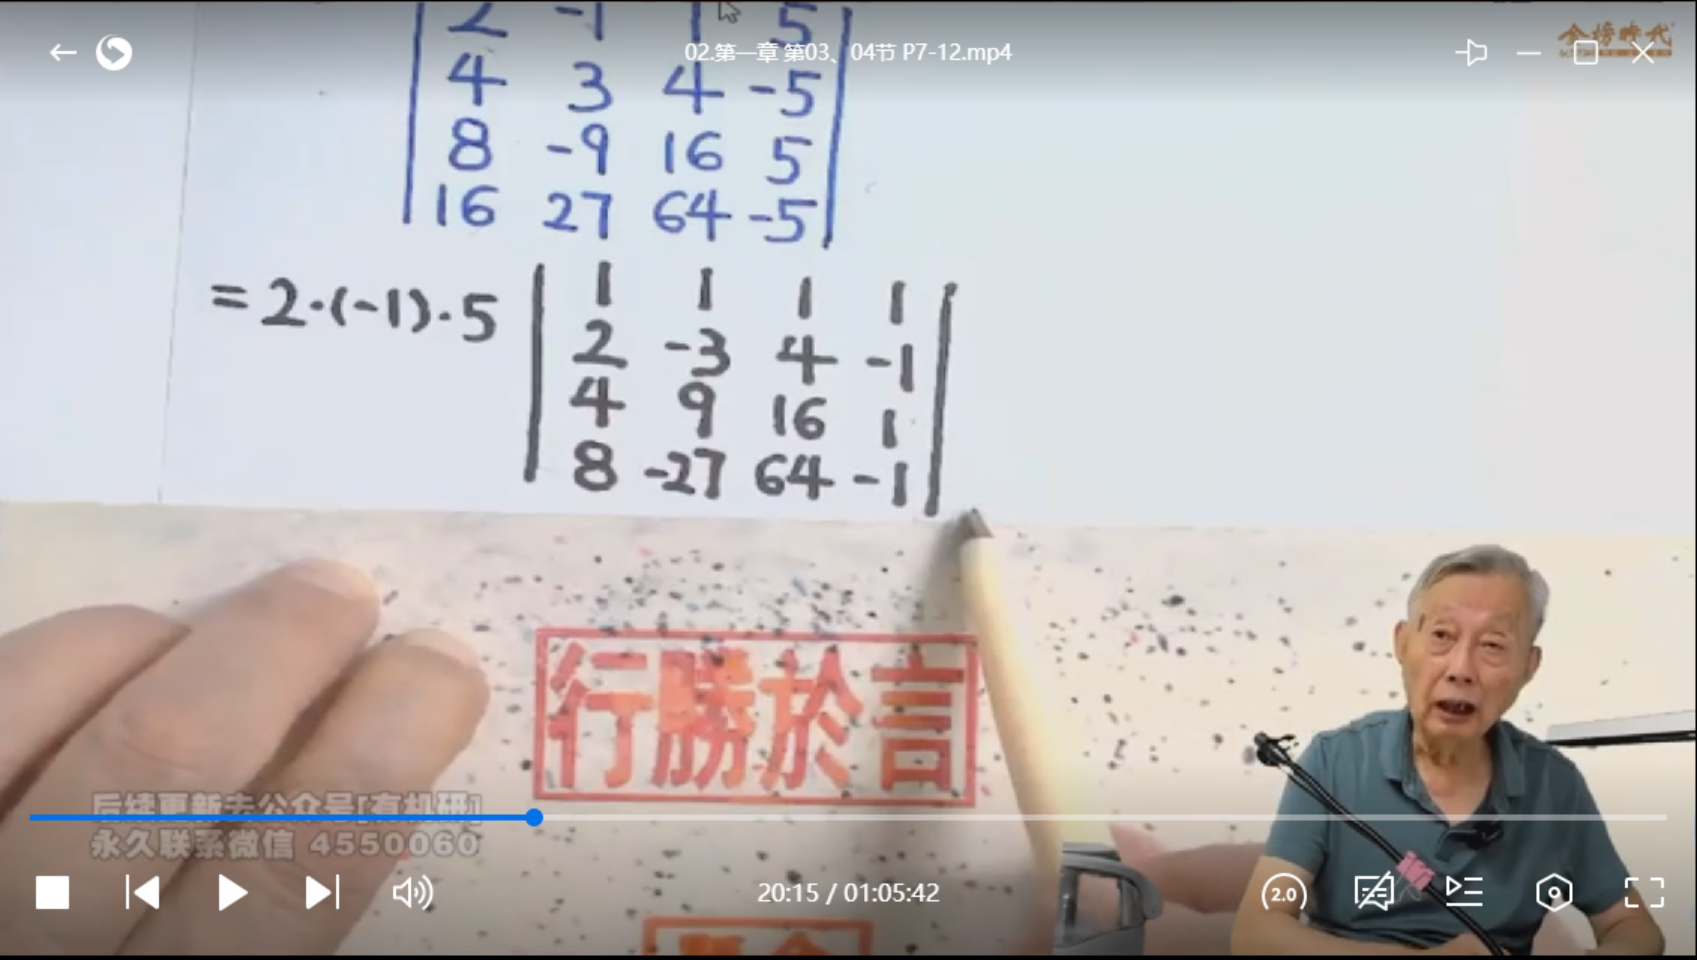 2 -1 1 5
02.第一章 第03、04节 P7-12.mp4
金榜时代
4 3 4 -5
8 -9 16 5
16 27 64 -5
= 2·(-1)·5
1 1 1 1
2 -3 4 -1
4 9 16 1
8 -27 64 -1
行勝於言
后续更新去公众号[有机研]
永久联系微信 4550060
20:15 / 01:05:42
2.0